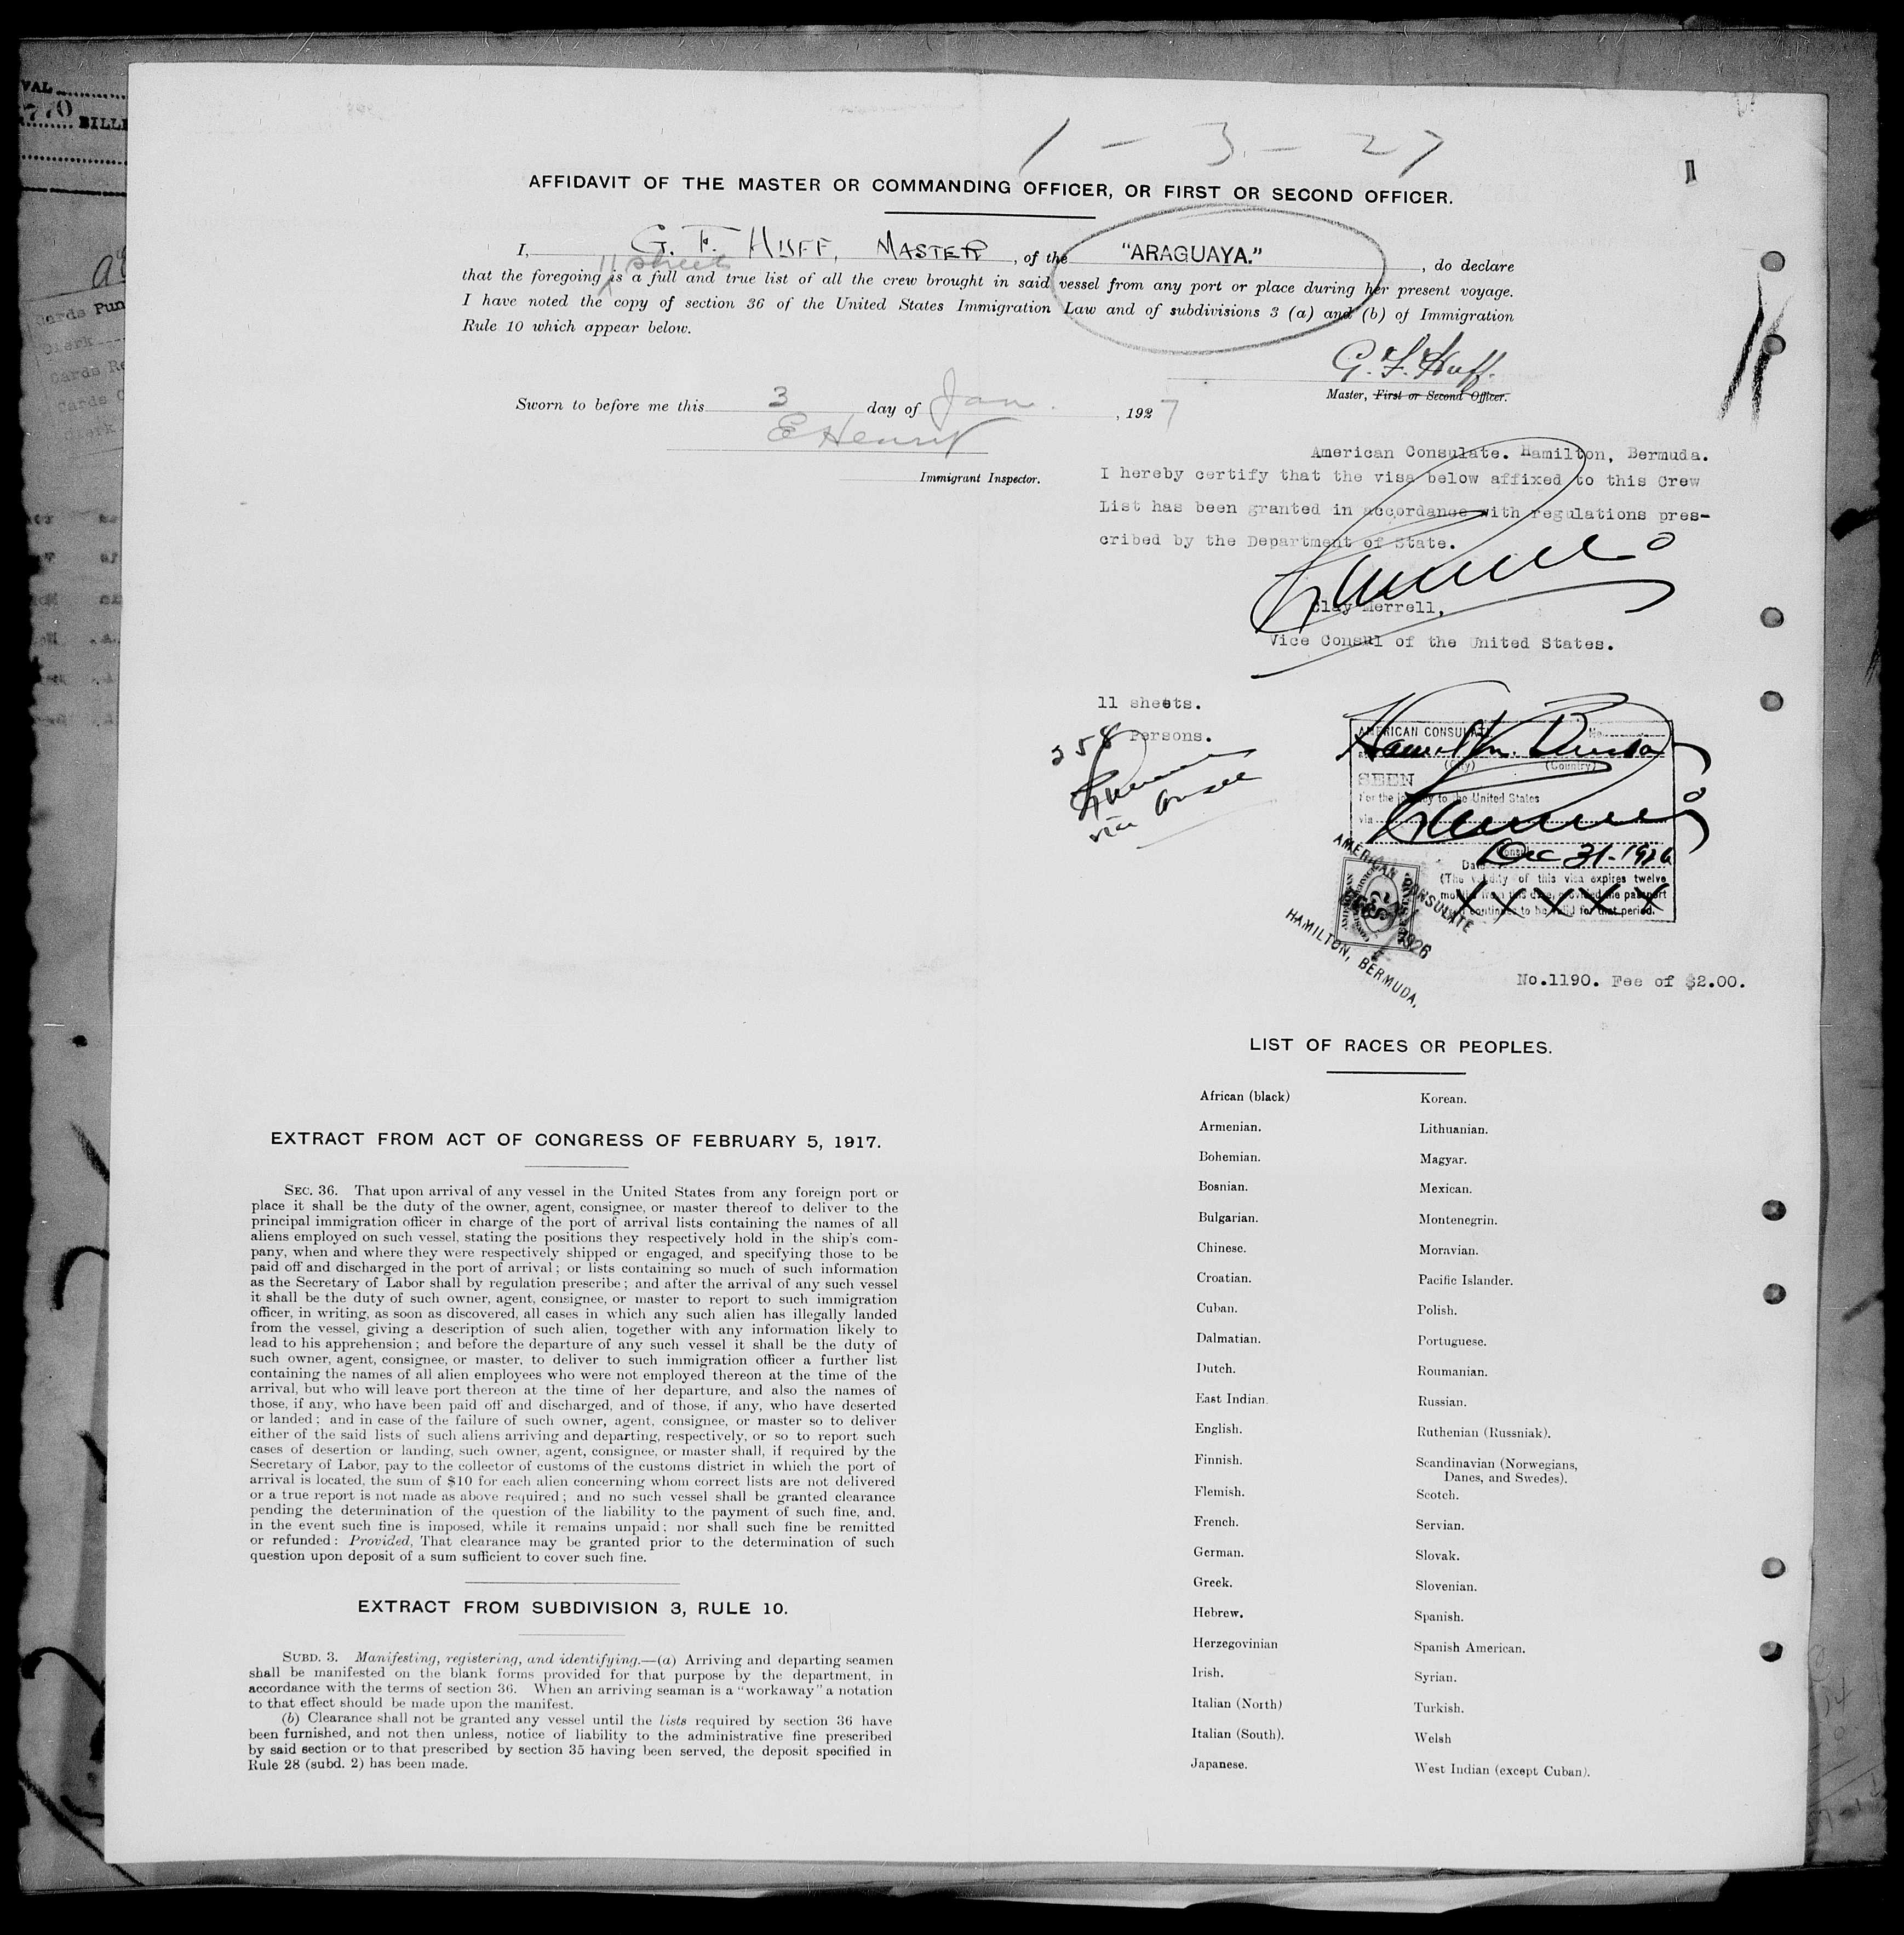 VAL
770
BILLE
1 - 3 - 27
AFFIDAVIT OF THE MASTER OR COMMANDING OFFICER, OR FIRST OR SECOND OFFICER.
I, G. F. HUFF, MASTER, of the "ARAGUAYA.", do declare
11 sheets
that the foregoing is a full and true list of all the crew brought in said vessel from any port or place during her present voyage.
I have noted the copy of section 36 of the United States Immigration Law and of subdivisions 3 (a) and (b) of Immigration
Rule 10 which appear below.
G. F. Huff.
Master, First or Second Officer.
Sworn to before me this 3 day of Jan., 1927
E Henry
Immigrant Inspector.
American Consulate. Hamilton, Bermuda.
I hereby certify that the visa below affixed to this Crew
List has been granted in accordance with regulations pres-
cribed by the Department of State.
Clay Merrell,
Vice Consul of the United States.
11 sheets.
258 Persons.
Vice Consul
AMERICAN CONSULATE No.
Hamilton. Bermuda
(City) (Country)
SEEN
For the journey to the United States
via
Consul
Date Dec 31-1926
(The validity of this visa expires twelve
months from this date, provided the passport
continues to be valid for that period.
X X X X X
AMERICAN CONSULATE
1926
HAMILTON, BERMUDA,
No.1190. Fee of $2.00.
LIST OF RACES OR PEOPLES.
African (black)
Armenian.
Bohemian.
Bosnian.
Bulgarian.
Chinese.
Croatian.
Cuban.
Dalmatian.
Dutch.
East Indian.
English.
Finnish.
Flemish.
French.
German.
Greek.
Hebrew.
Herzegovinian
Irish.
Italian (North)
Italian (South).
Japanese.
Korean.
Lithuanian.
Magyar.
Mexican.
Montenegrin.
Moravian.
Pacific Islander.
Polish.
Portuguese.
Roumanian.
Russian.
Ruthenian (Russniak).
Scandinavian (Norwegians,
Danes, and Swedes).
Scotch.
Servian.
Slovak.
Slovenian.
Spanish.
Spanish American.
Syrian.
Turkish.
Welsh
West Indian (except Cuban).
EXTRACT FROM ACT OF CONGRESS OF FEBRUARY 5, 1917.
SEC. 36. That upon arrival of any vessel in the United States from any foreign port or
place it shall be the duty of the owner, agent, consignee, or master thereof to deliver to the
principal immigration officer in charge of the port of arrival lists containing the names of all
aliens employed on such vessel, stating the positions they respectively hold in the ship's com-
pany, when and where they were respectively shipped or engaged, and specifying those to be
paid off and discharged in the port of arrival; or lists containing so much of such information
as the Secretary of Labor shall by regulation prescribe; and after the arrival of any such vessel
it shall be the duty of such owner, agent, consignee, or master to report to such immigration
officer, in writing, as soon as discovered, all cases in which any such alien has illegally landed
from the vessel, giving a description of such alien, together with any information likely to
lead to his apprehension; and before the departure of any such vessel it shall be the duty of
such owner, agent, consignee, or master, to deliver to such immigration officer a further list
containing the names of all alien employees who were not employed thereon at the time of the
arrival, but who will leave port thereon at the time of her departure, and also the names of
those, if any, who have been paid off and discharged, and of those, if any, who have deserted
or landed; and in case of the failure of such owner, agent, consignee, or master so to deliver
either of the said lists of such aliens arriving and departing, respectively, or so to report such
cases of desertion or landing, such owner, agent, consignee, or master shall, if required by the
Secretary of Labor, pay to the collector of customs of the customs district in which the port of
arrival is located, the sum of $10 for each alien concerning whom correct lists are not delivered
or a true report is not made as above required; and no such vessel shall be granted clearance
pending the determination of the question of the liability to the payment of such fine, and,
in the event such fine is imposed, while it remains unpaid; nor shall such fine be remitted
or refunded: Provided, That clearance may be granted prior to the determination of such
question upon deposit of a sum sufficient to cover such fine.
EXTRACT FROM SUBDIVISION 3, RULE 10.
SUBD. 3. Manifesting, registering, and identifying.—(a) Arriving and departing seamen
shall be manifested on the blank forms provided for that purpose by the department, in
accordance with the terms of section 36. When an arriving seaman is a "workaway" a notation
to that effect should be made upon the manifest.
(b) Clearance shall not be granted any vessel until the lists required by section 36 have
been furnished, and not then unless, notice of liability to the administrative fine prescribed
by said section or to that prescribed by section 35 having been served, the deposit specified in
Rule 28 (subd. 2) has been made.